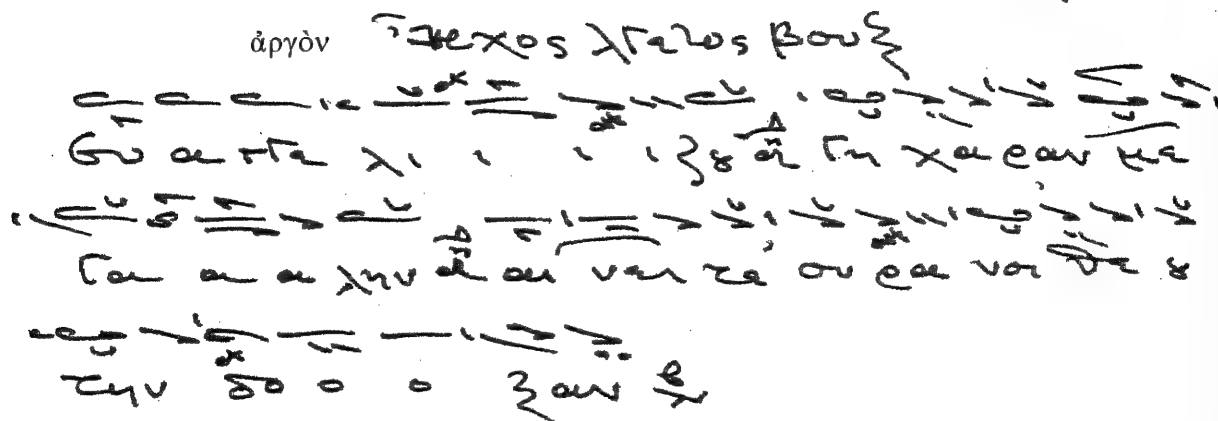 ἀργὸν Ἦχος λέγετος βου
Ευ α γγε λι ι ι ι ζου γη χα ραν με
γα α α λην αι νει τε ου ρα νοι Θε ου
την δο ο ο ξαν